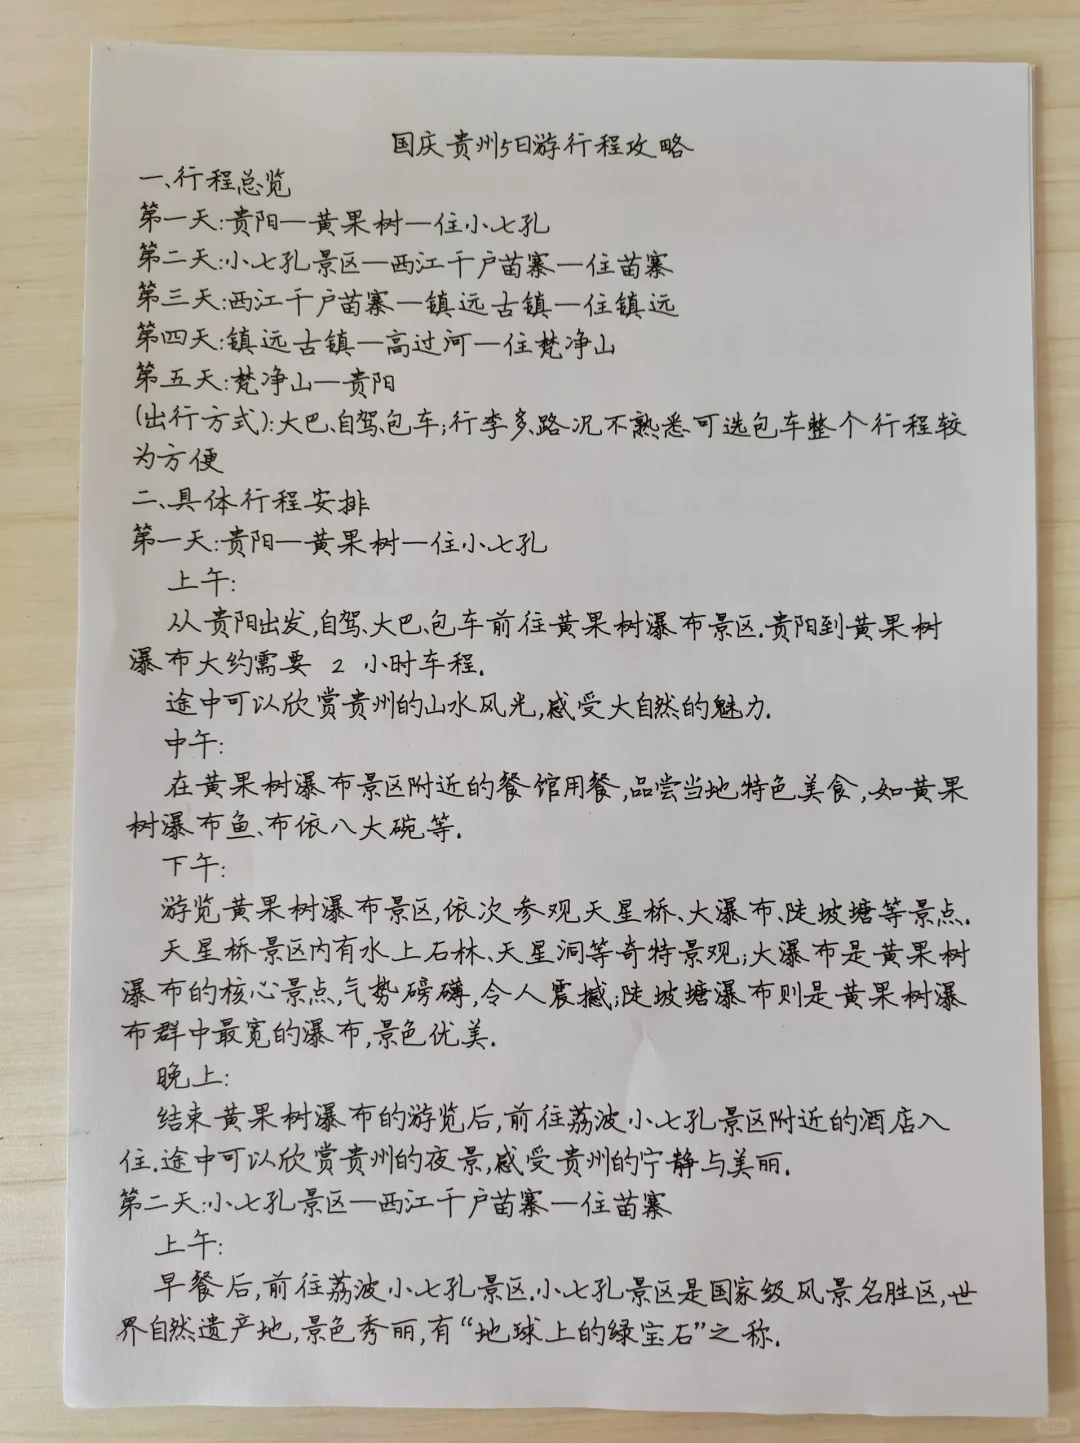 国庆贵州5日游行程攻略
一、行程总览
第一天:贵阳—黄果树—住小七孔
第二天:小七孔景区—西江千户苗寨—住苗寨
第三天:西江千户苗寨—镇远古镇—住镇远
第四天:镇远古镇—高过河—住梵净山
第五天:梵净山—贵阳
(出行方式):大巴、自驾、包车;行李多、路况不熟悉可选包车整个行程较
为方便
二、具体行程安排
第一天:贵阳—黄果树—住小七孔
上午:
从贵阳出发,自驾、大巴、包车前往黄果树瀑布景区.贵阳到黄果树
瀑布大约需要 2 小时车程.
途中可以欣赏贵州的山水风光,感受大自然的魅力.
中午:
在黄果树瀑布景区附近的餐馆用餐,品尝当地特色美食,如黄果
树瀑布鱼、布依八大碗等.
下午:
游览黄果树瀑布景区,依次参观天星桥、大瀑布、陡坡塘等景点.
天星桥景区内有水上石林、天星洞等奇特景观;大瀑布是黄果树
瀑布的核心景点,气势磅礴,令人震撼;陡坡塘瀑布则是黄果树瀑
布群中最宽的瀑布,景色优美.
晚上:
结束黄果树瀑布的游览后,前往荔波小七孔景区附近的酒店入
住.途中可以欣赏贵州的夜景,感受贵州的宁静与美丽.
第二天:小七孔景区—西江千户苗寨—住苗寨
上午:
早餐后,前往荔波小七孔景区.小七孔景区是国家级风景名胜区,世
界自然遗产地,景色秀丽,有“地球上的绿宝石”之称.